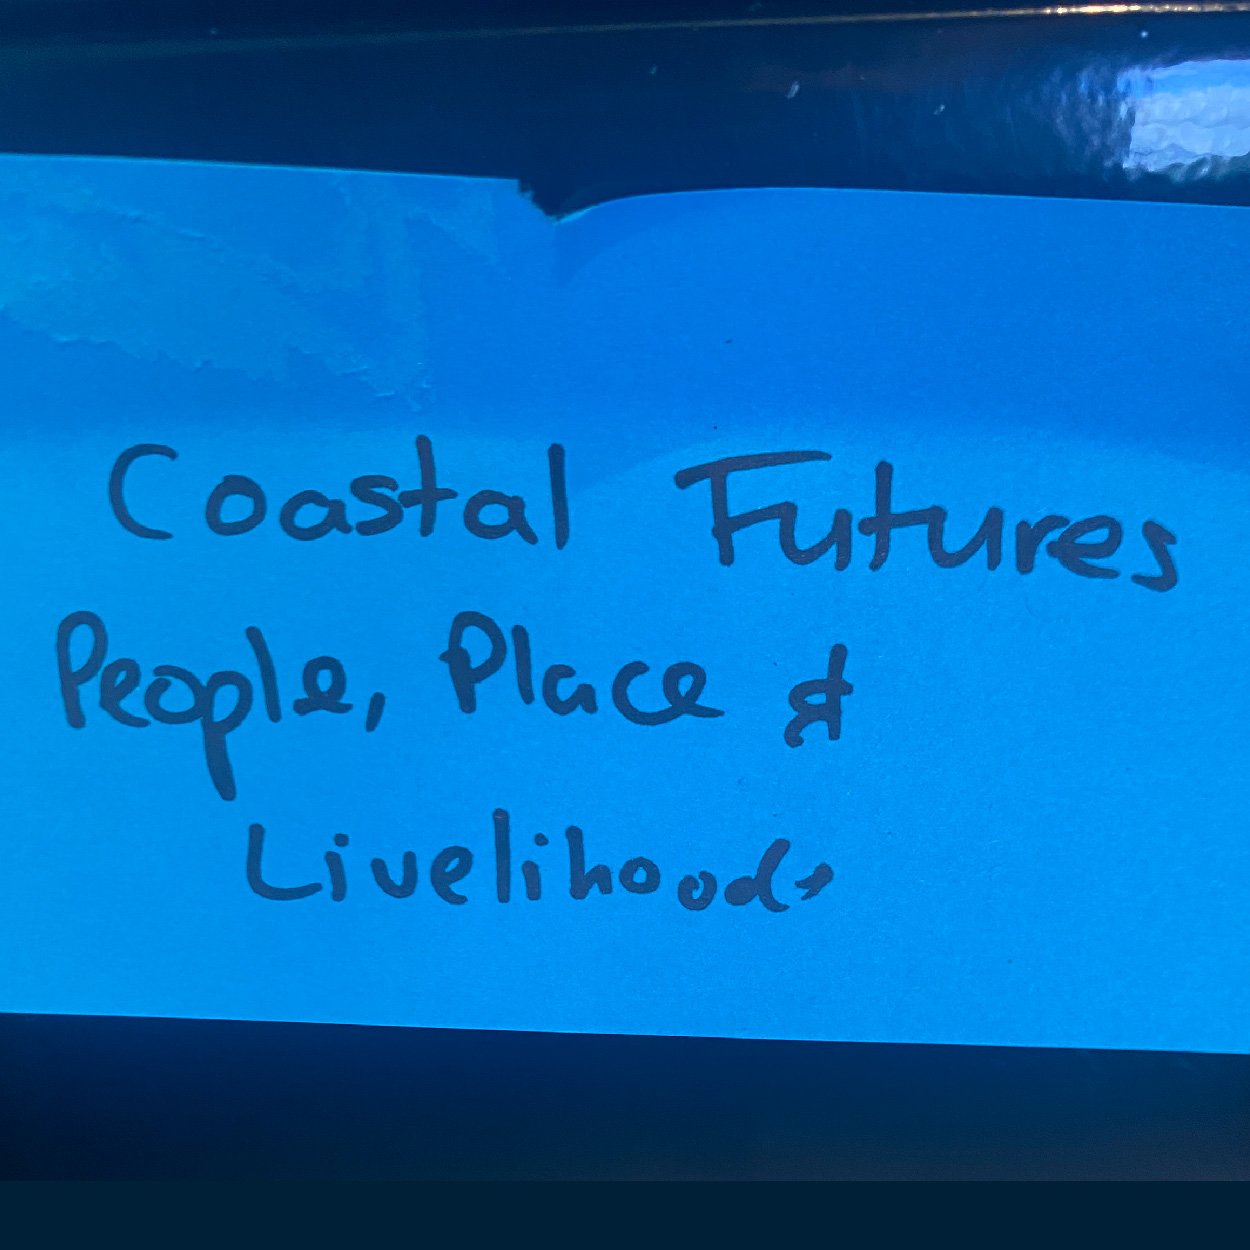 Coastal Futures
People, Place &
Livelihoods